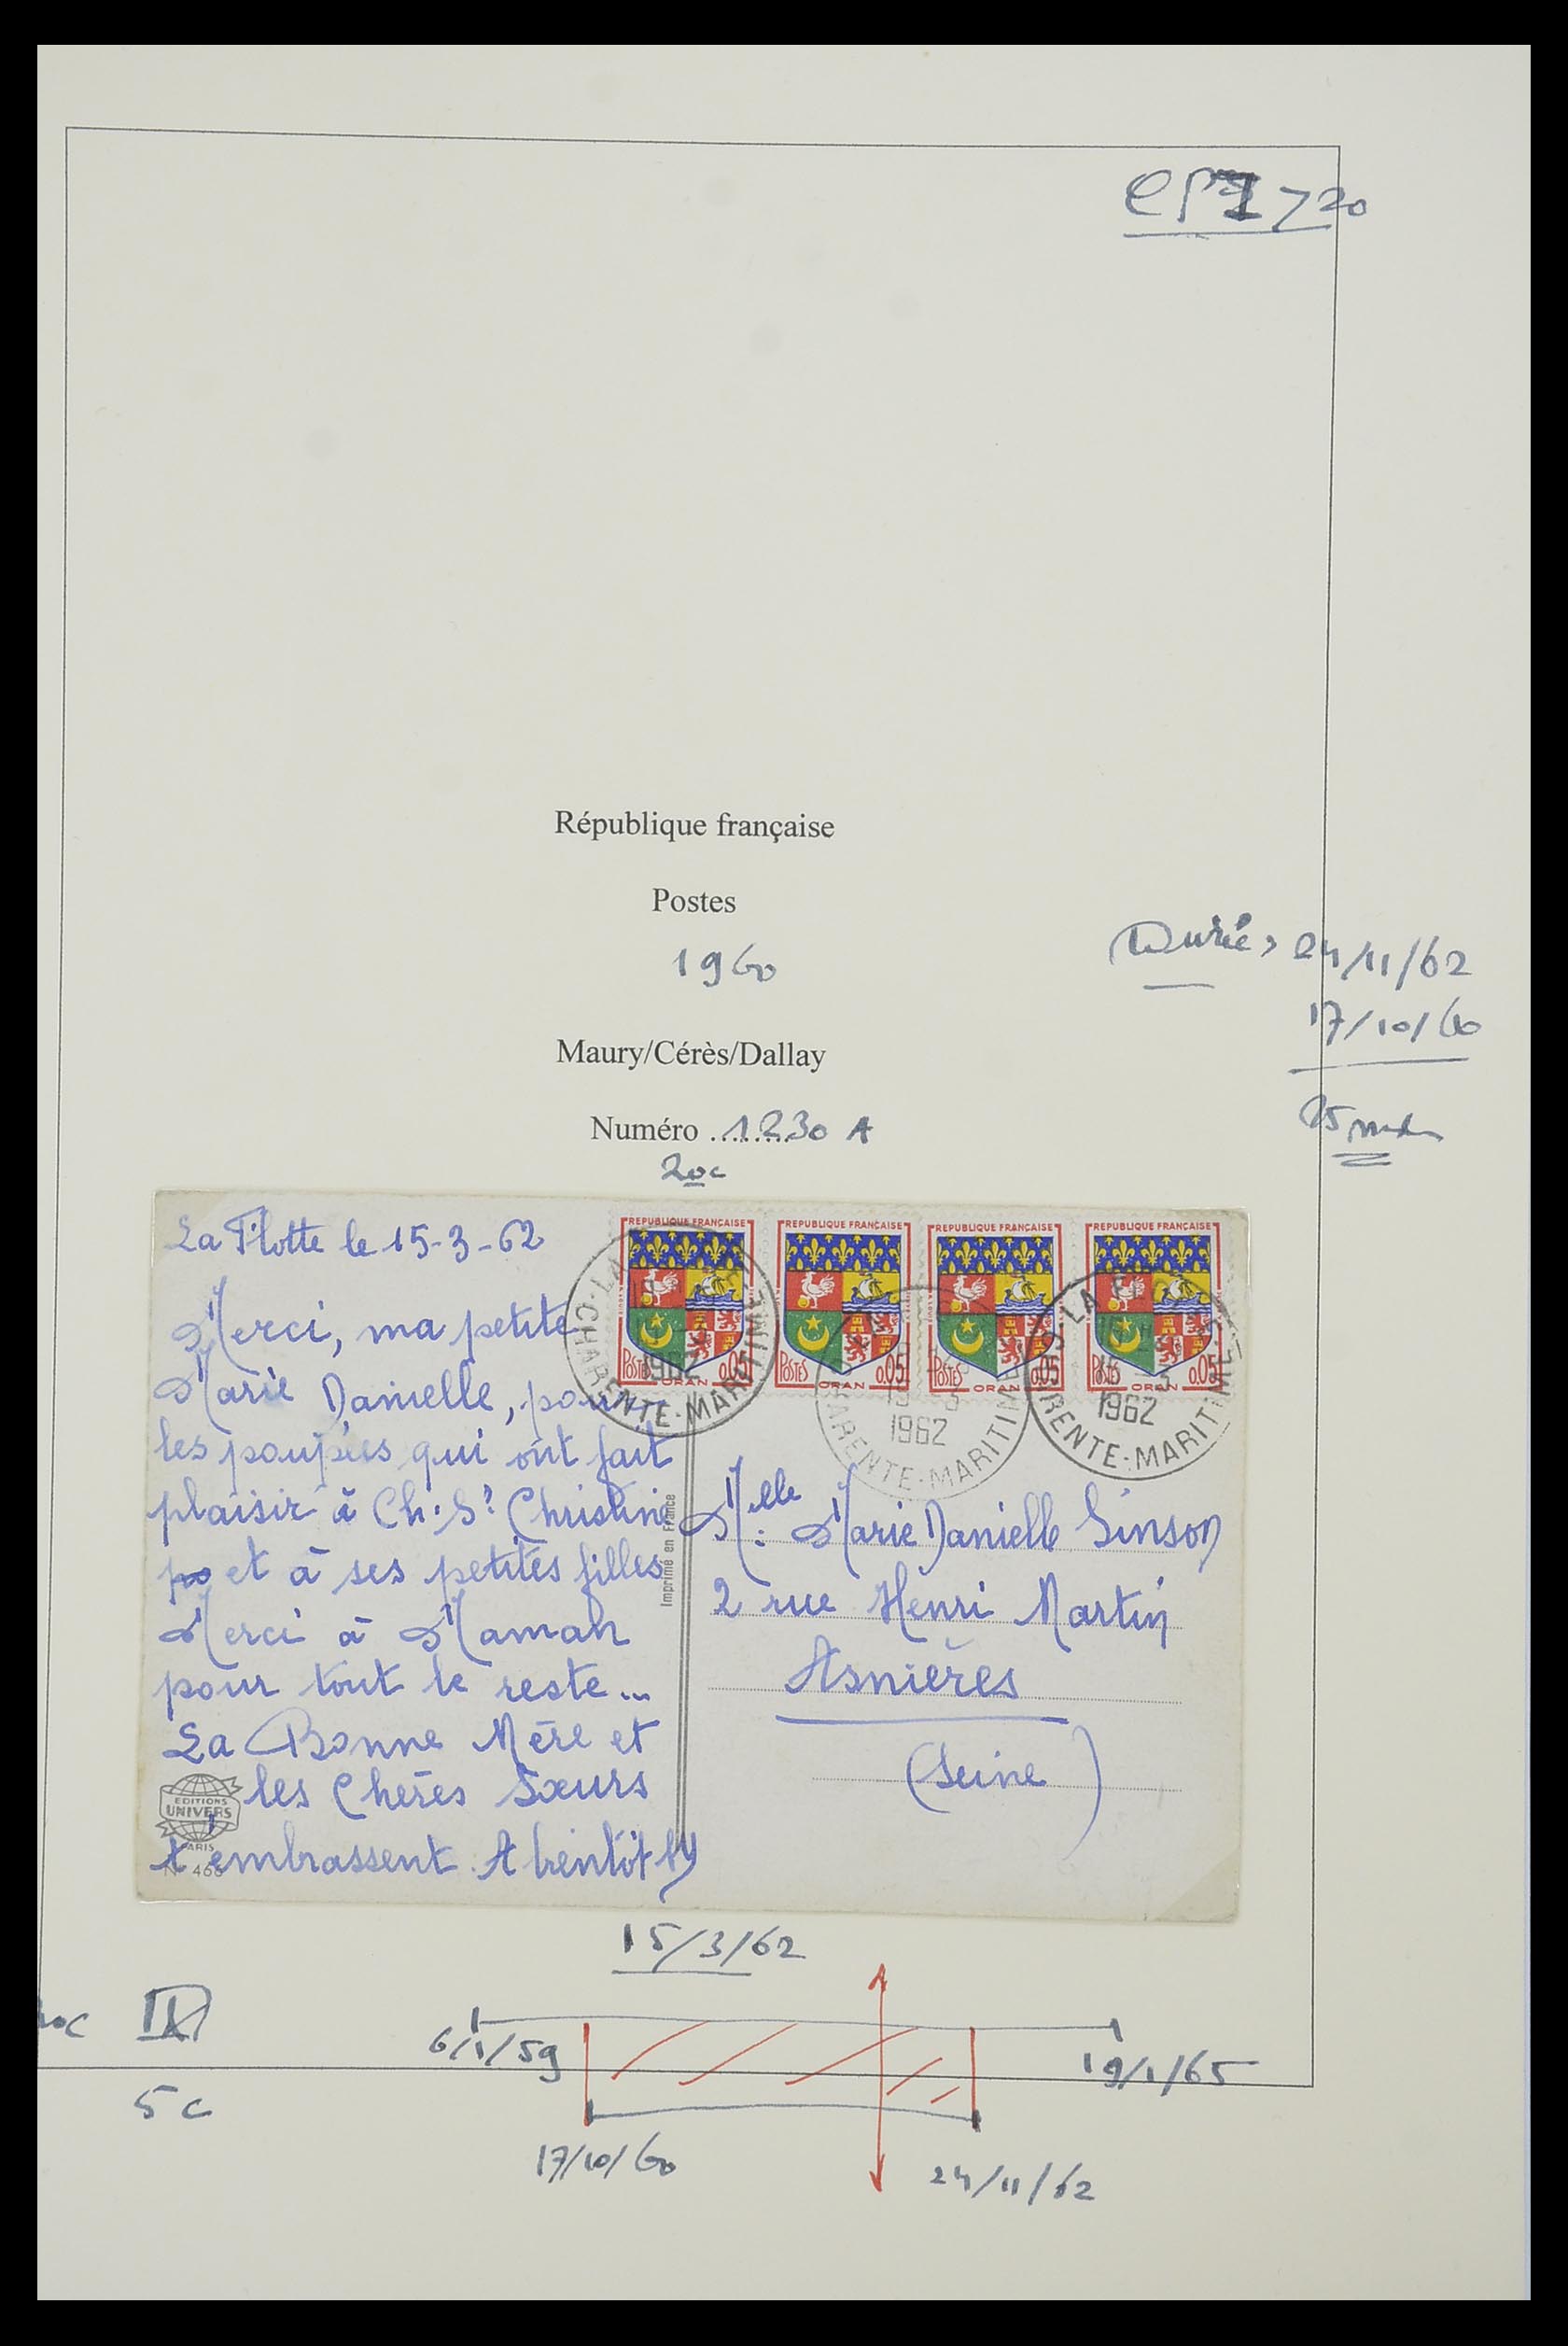 20
République française
Postes
1960
Maury/Cérès/Dallay
Numéro ......... 1230 A
20c
Durée > 24/11/62
17/10/60
25
La Flotte le 15-3-62
Merci, ma petite
Marie Danielle, pour
les poupées qui ont fait
plaisir à Ch. Sr Christine
et à ses petites filles
Merci à Maman
pour tout le reste...
La Bonne Mère et
les Chères Sœurs
t'embrassent. A bientôt
EDITIONS
UNIVERS
PARIS
Imprimé en France
REPUBLIQUE FRANÇAISE
POSTES 0.05
ORAN
REPUBLIQUE FRANÇAISE
POSTES 0.05
ORAN
REPUBLIQUE FRANÇAISE
POSTES 0.05
ORAN
REPUBLIQUE FRANÇAISE
POSTES 0.05
ORAN
CHARENTE-MARITIME
1962
CHARENTE-MARITIME
1962
CHARENTE-MARITIME
1962
Melle Marie Danielle Sinson
2 rue Henri Martin
Asnières
(Seine)
15/3/62
6/1/59
19/1/65
5c
17/10/60
24/11/62